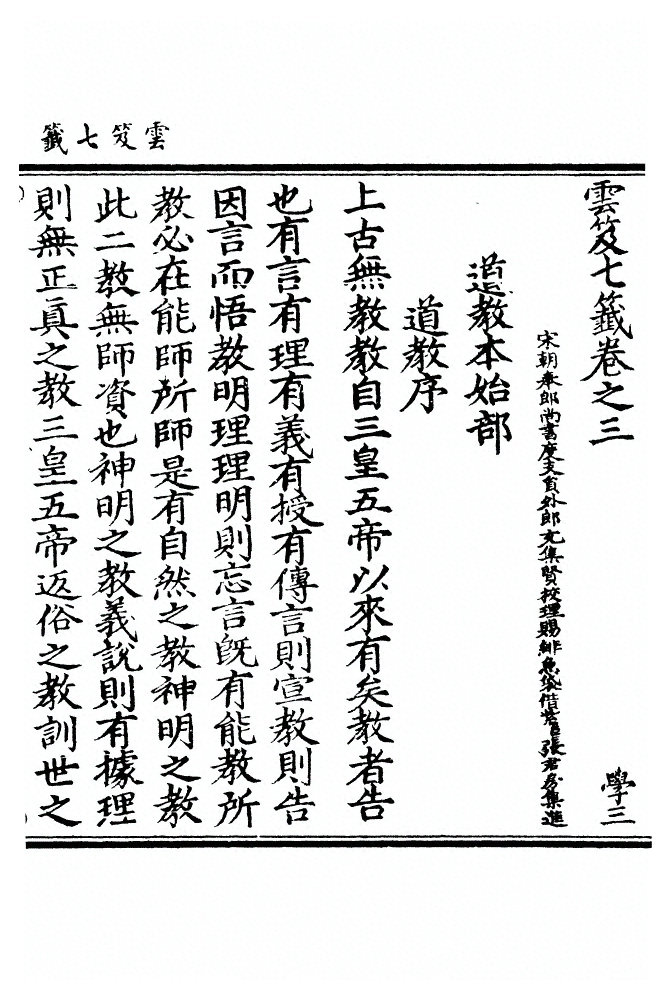 雲笈七籤
雲笈七籤卷之三
學三
宋朝奉郎尚書度支員外郎充集賢校理賜緋魚袋借紫臣張君房集進
道教本始部
道教序
上古無教教自三皇五帝以來有矣教者告
也有言有理有義有授有傳言則宣教則告
因言而悟教明理理明則忘言旣有能教所
教必在能師所師是有自然之教神明之教
此二教無師資也神明之教義說則有據理
則無正真之教三皇五帝返俗之教訓世之